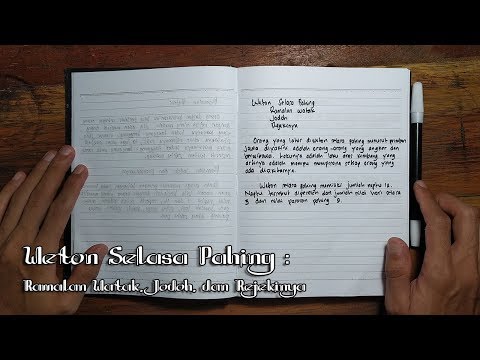 Weton Selasa Pahing
Ramalan watak
Jodoh
Rejekinya
Orang yang lahir diweton selasa pahing menurut primbon
jawa diyakini adalah orang-orang yang angker dan
berwibawa. Lakunya adalah laku dari kembang yang
artinya adalah mampu mempesona setiap orang yang
ada disekitarnya.
Weton selasa pahing memiliki jumlah neptu 12.
Neptu tersebut diperoleh dari jumlah nilai hari selasa
3 dan nilai pasaran pahing 9.
Weton Selasa Pahing :
Ramalan Watak, Jodoh, dan Rejekinya